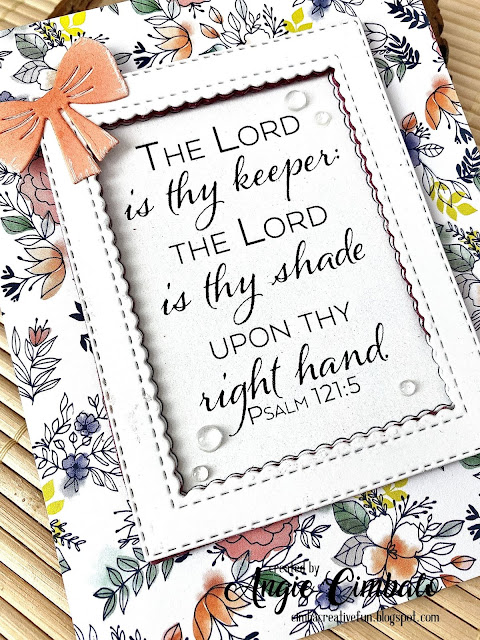 The Lord
is thy keeper:
the Lord
is thy shade
upon thy
right hand.
Psalm 121:5
created by
Angie Cimbalo
cimbocreativefun.blogspot.com